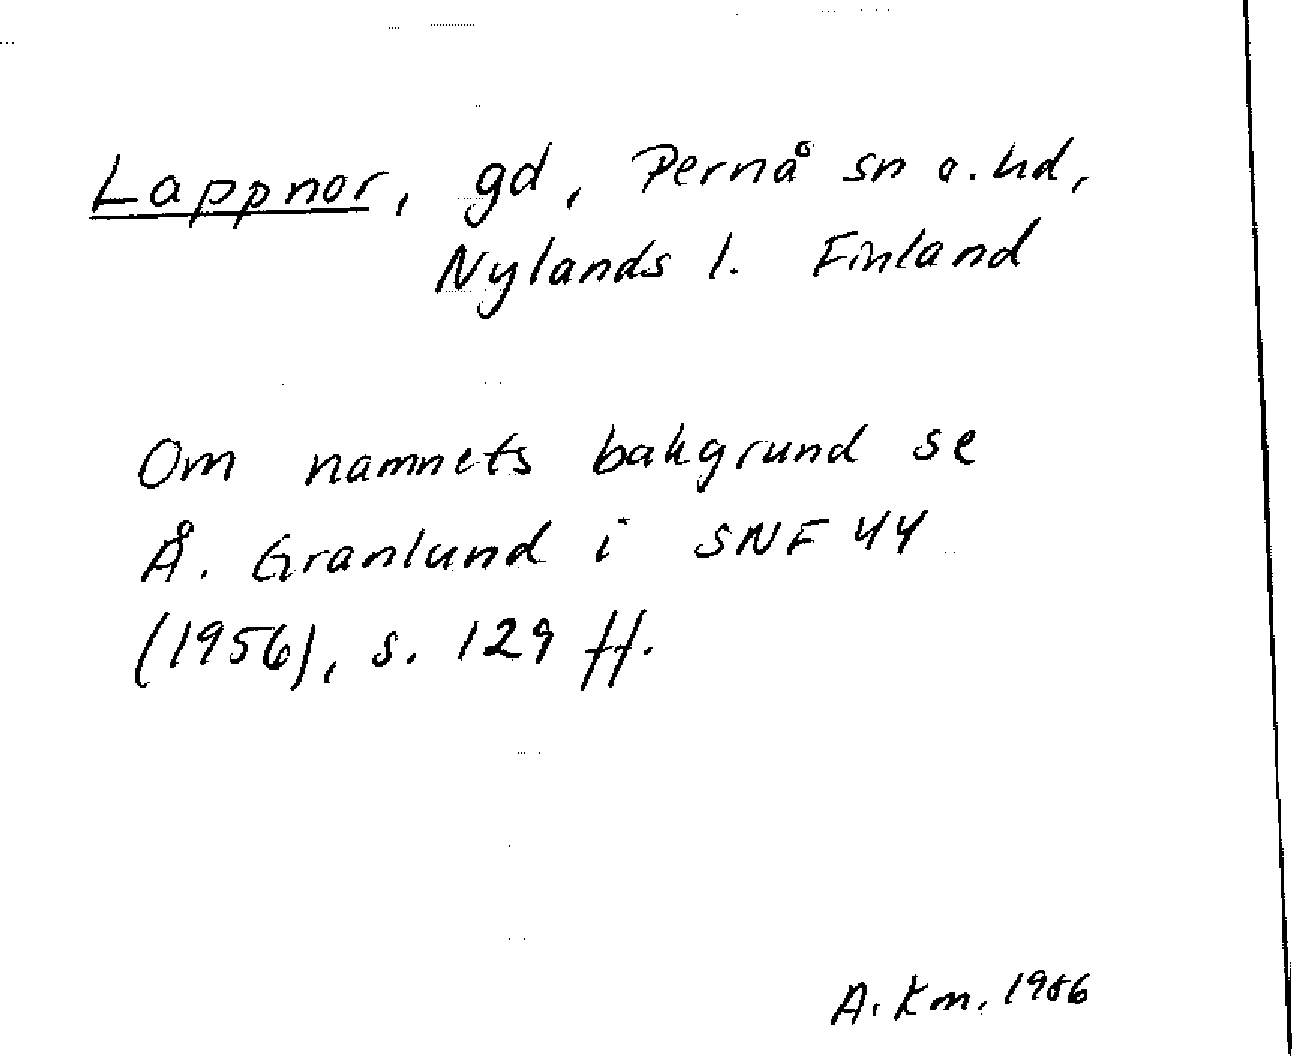 Lappnor, gd, Pernå sn o. hd,
Nylands l. Finland
Om namnets bakgrund se
Å. Granlund i SNF 44
(1956), s. 129 ff.
A. Km. 1986